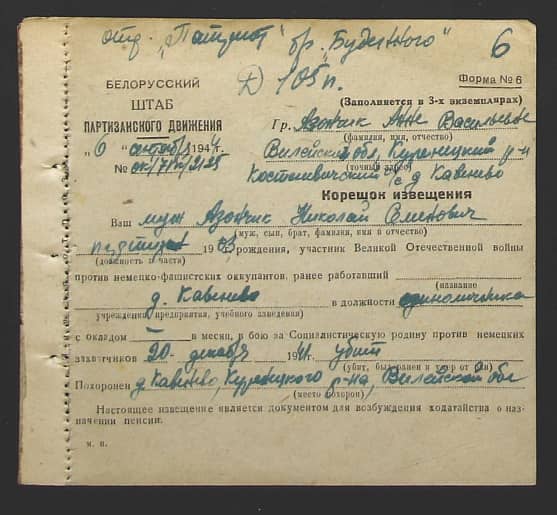 отр. "Патриот" бр. "Буденного" 6
Д 105 п.
Форма № 6
БЕЛОРУССКИЙ
ШТАБ
ПАРТИЗАНСКОГО ДВИЖЕНИЯ
(Заполняется в 3-х экземплярах)
Гр. Азончик Анне Васильевне
(фамилия, имя, отчество)
"6" октября 1944
Вилейской обл, Куренецкий р-н
(точный адрес)
№
Костеневичский с/с д Кавенево
Корешок извещения
Ваш муж Азончик Николай Семенович
(муж, сын, брат, фамилия, имя и отчество)
1903 рождения, участник Великой Отечественной войны
(должность и часть)
против немецко-фашистских оккупантов, ранее работавший
(название
д. Кавенево в должности единоличника
учреждения, предприятия, учебного заведения)
с окладом — в месяц, в бою за Социалистическую родину против немецких
захватчиков 20 декабря 1941 убит
(убит, был ранен и умер от ран)
Похоронен д. Кавенево, Куренецкого р-на, Вилейской обл
(место похорон)
Настоящее извещение является документом для возбуждения ходатайства о наз-
начении пенсии.
м. п.